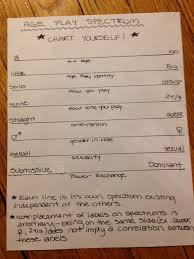 AGE PLAY SPECTRUM
★ CHART YOURSELF! ★
0
Bio age
little Big
Age Play identity
solo group
How you play
scene 24/7
How long you play
straight queer
orientation
♂ ♀
gender in role
asexual sexual
sexuality
Submissive Dominant
Power Exchange
★ Each line is its own spectrum existing
independent of the others.
★ Note: placement of labels on spectrums is
arbitrary - being on the same side (ex. queer,
♀, 24/7) does not imply a correlation between
these labels